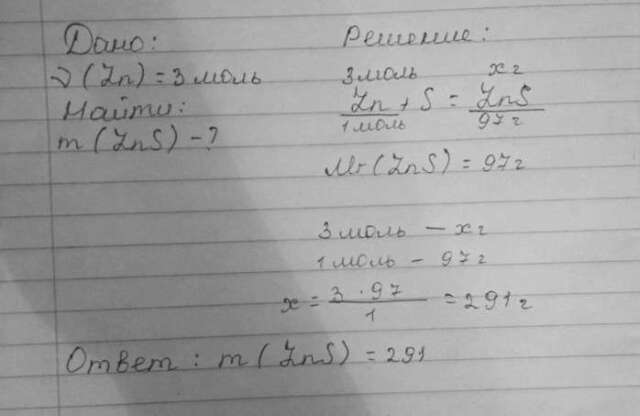 Дано:
ν(Zn) = 3 моль
Найти:
m(ZnS) - ?
Решение:
3 моль x г
Zn + S = ZnS
1 моль 97 г
Mr(ZnS) = 97 г
3 моль — x г
1 моль - 97 г
x = 3 · 97 / 1 = 291 г
Ответ: m(ZnS) = 291